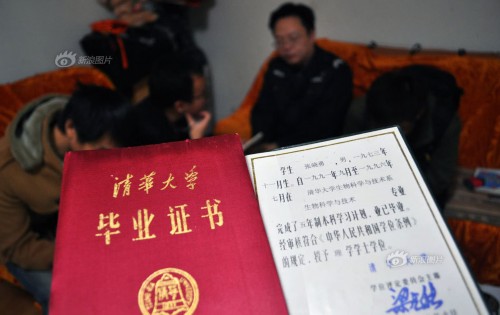 新浪图片
清华大学
毕业证书
学生 男，一九七三年
十一月生。自一九九一年九月至一九九六年
七月在 清华大学生物科学与技术系
生物科学与技术 专业
完成了五年制本科学习计划，业已毕业。
经审核符合《中华人民共和国学位条例》
的规定，授予 理 学学士学位。
学位评定委员会主席